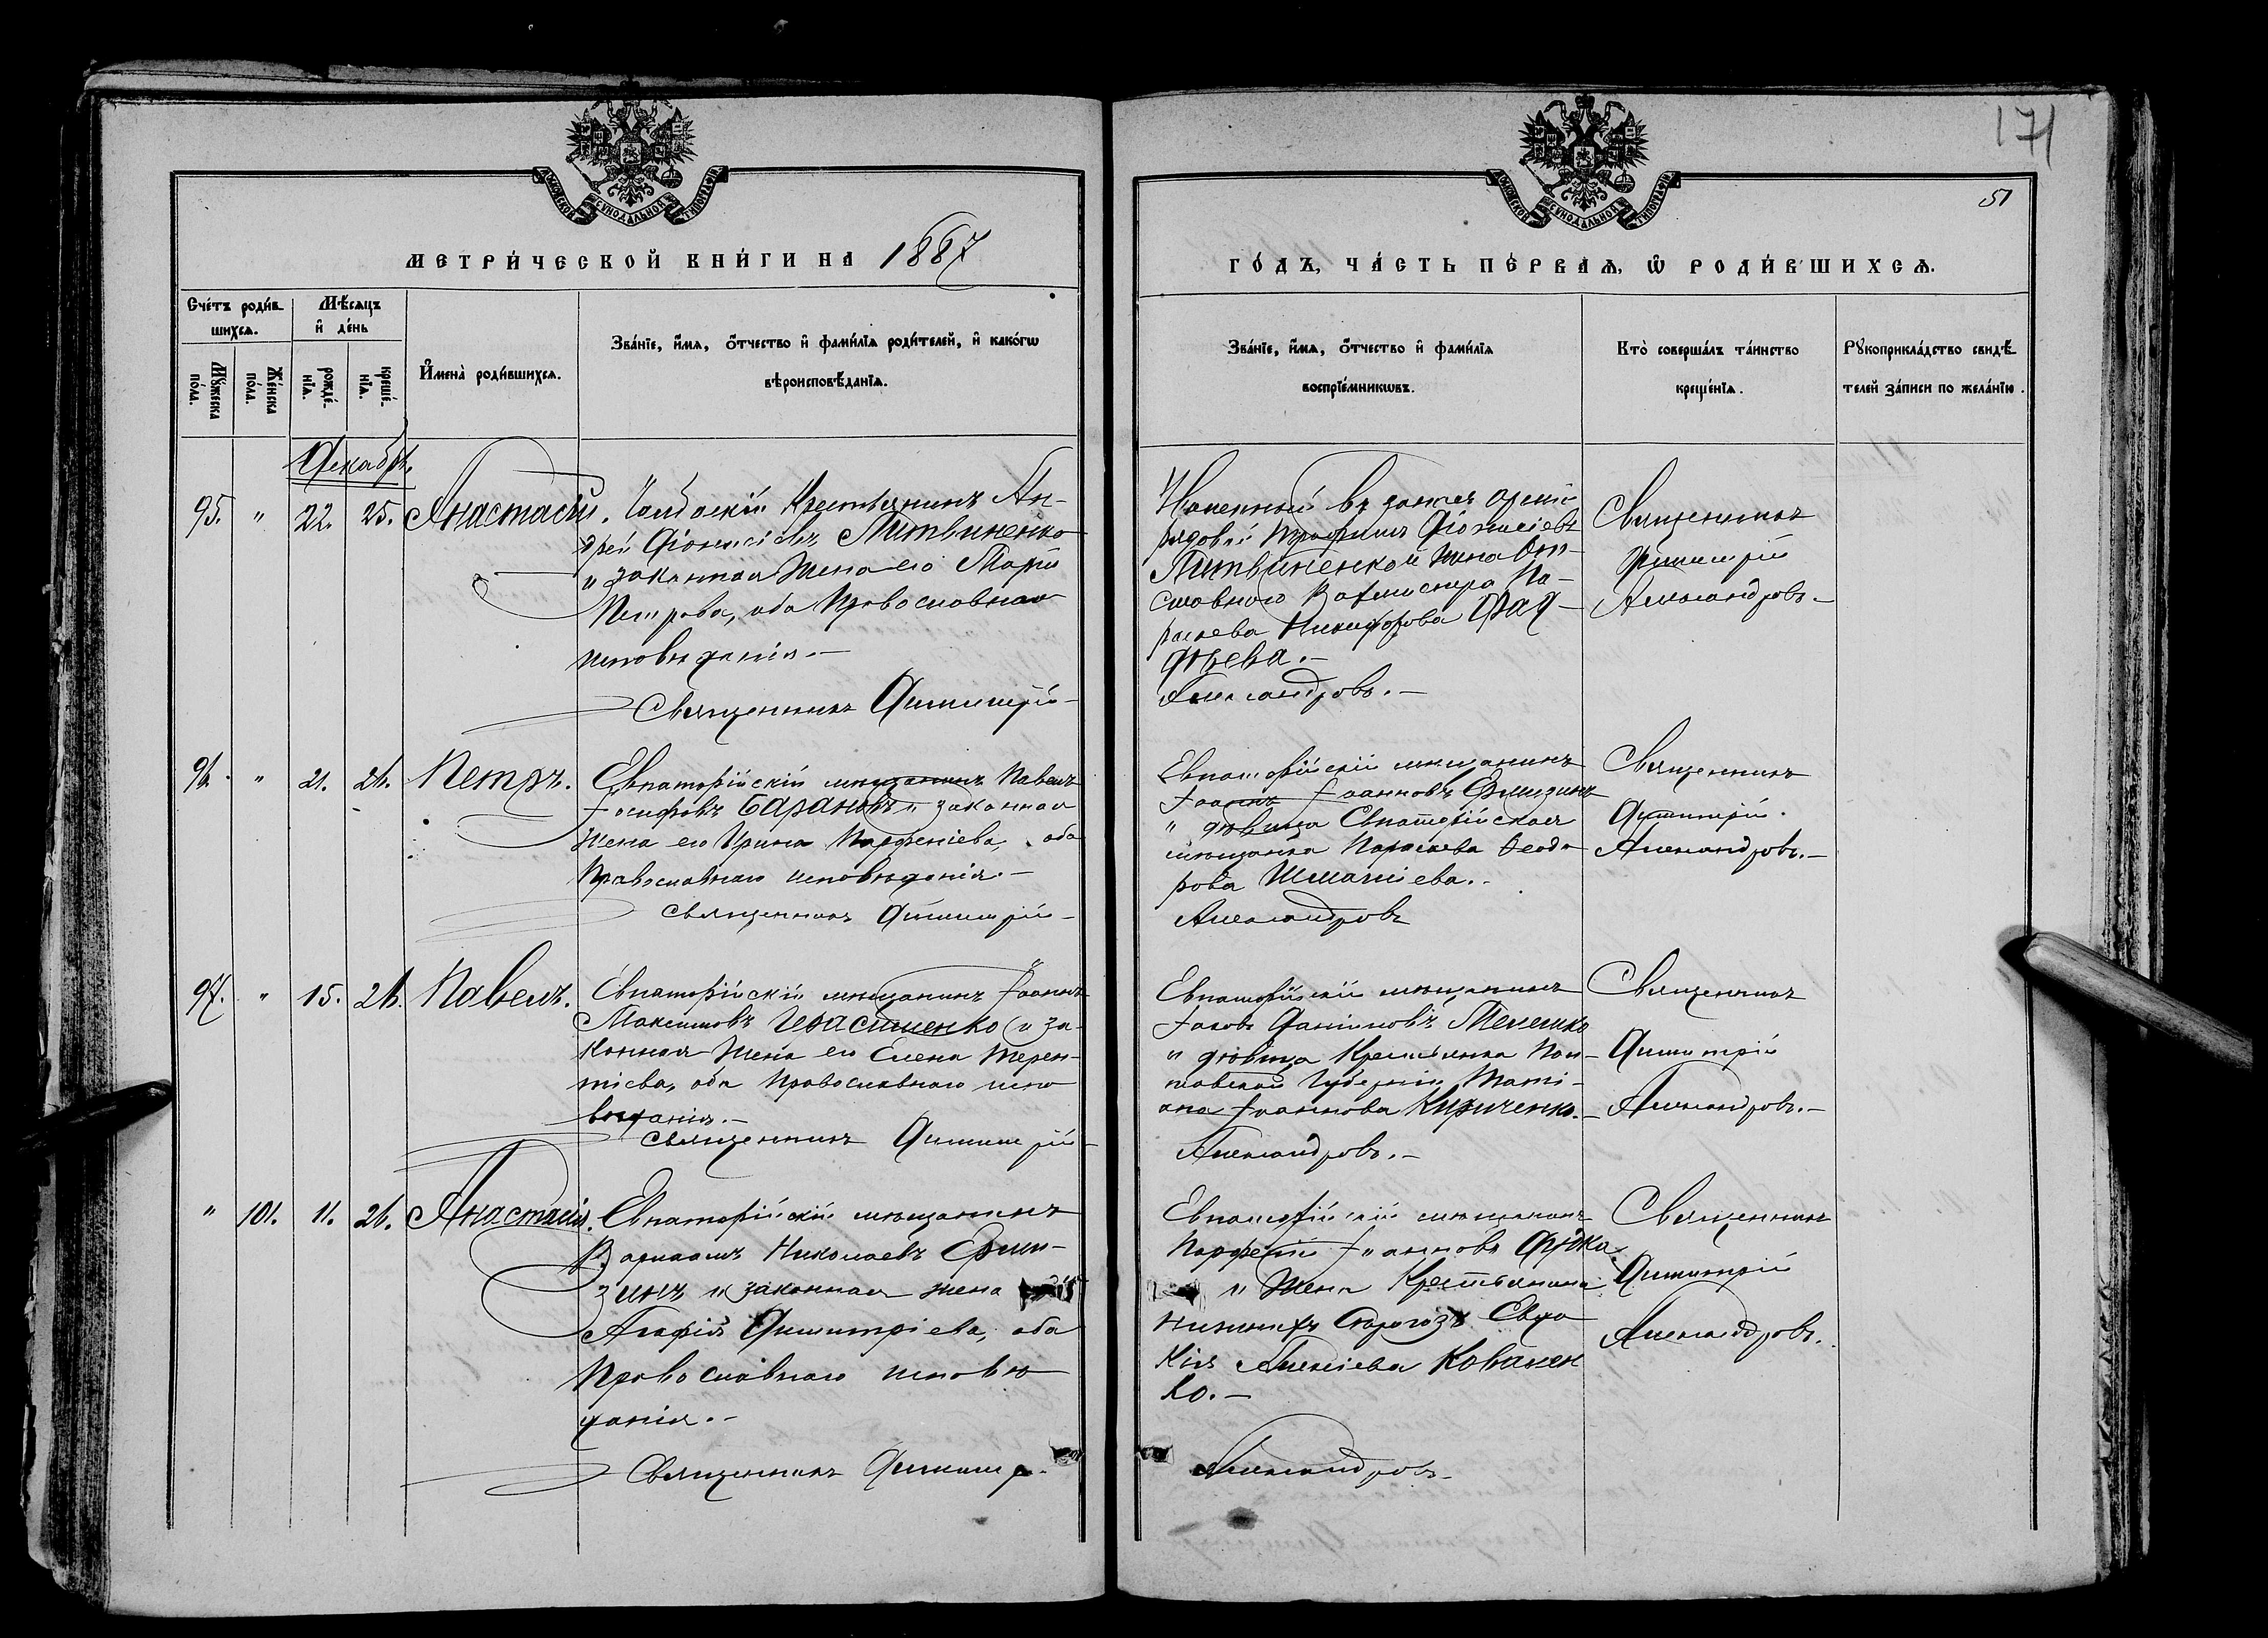 171
51
МОСКОВСКОЙ СѴНОДАЛЬНОЙ ТИПОГРАФІИ
МОСКОВСКОЙ СѴНОДАЛЬНОЙ ТИПОГРАФІИ
МЕТРИ́ЧЕСКОЙ КНИ́ГИ НА 1887
ГО́ДЪ, ЧА́СТЬ ПЕ́РВАѦ, Ѡ҆ РОДИ́ВШИХСѦ.
Сче́тъ роди́в
шихсѧ.
Мѣ́сѧцъ
и҆ де́нь
Мꙋ́жеска
по́ла.
Же́нска
по́ла.
рожде́-
нїѧ.
креще́-
нїѧ.
И҆мена̀ роди́вшихсѧ.
Зва́нїе, и҆́мѧ, ѻ҆́тчество и҆ фами́лїѧ роди́телей, и҆ како́гѡ
вѣроисповѣ́данїѧ.
Зва́нїе, и҆́мѧ, ѻ҆́тчество и҆ фами́лїѧ
воспрїе́мникѡвъ.
Кто̀ соверша́лъ та́инство
креще́нїѧ.
Рꙋкоприкла́дство свидѣ́-
телей за́писи по жела́нїю.
Декабрь.
95. " 22. 25. Анастасій.
Крестьянинъ Ан-
дрей Діонисіевъ Литвиненко
и законная жена его Марія
Петрова, оба Православнаго
исповѣданія.-
Священникъ Димитрій-
рядовой Трофимъ Діонисіевъ
Литвиненко и жена От-
ставного Вахмистра Па-
раскева Никифорова Фад-
дѣева.-
Александровъ.-
Священникъ
Димитрій
Александровъ.-
96. " 21. 26. Петръ.
Евпаторійскій мѣщанинъ Павелъ
Іосифовъ Барановъ и законная
жена его Ирина Парфеніева, оба
Православнаго исповѣданія.-
Священникъ Димитрій-
Евпаторійскій мѣщанинъ
Іоаннъ Іоанновъ
и дѣвица Евпаторійская
мѣщанка Параскева Ѳеодо
рова
Александровъ
Священникъ
Димитрій.
Александровъ.-
97. " 15. 26. Павелъ.
Евпаторійскій мѣщанинъ Іоаннъ
Максимовъ Герасименко и за-
конная жена его Елена Терен-
тіева, оба Православнаго испо
вѣданія.-
Священникъ Димитрій-
Евпаторійскій мѣщанинъ
Іаковъ Даніиловъ Мелешко
и дѣвица Крестьянка Пол-
тавской Губерніи Тати-
ана Іоаннова Кириченко.-
Александровъ.-
Священникъ
Димитрій
Александровъ.-
" 101. 11. 26. Анастасія.
Евпаторійскій мѣщанинъ
Варлаамъ Николаевъ Ерми-
зинъ и законная жена
Агафія Димитріева, оба
Православнаго исповѣ
данія.-
Священникъ Димитр.
Евпаторійскій мѣщанинъ
Парфеній Іоанновъ Дудка
и Жена Крестьянина
Нижнихъ Сѣрогозъ Евдо
кія Алексіева Ковален
ко.-
Александровъ-
Священникъ
Димитрій
Александровъ.